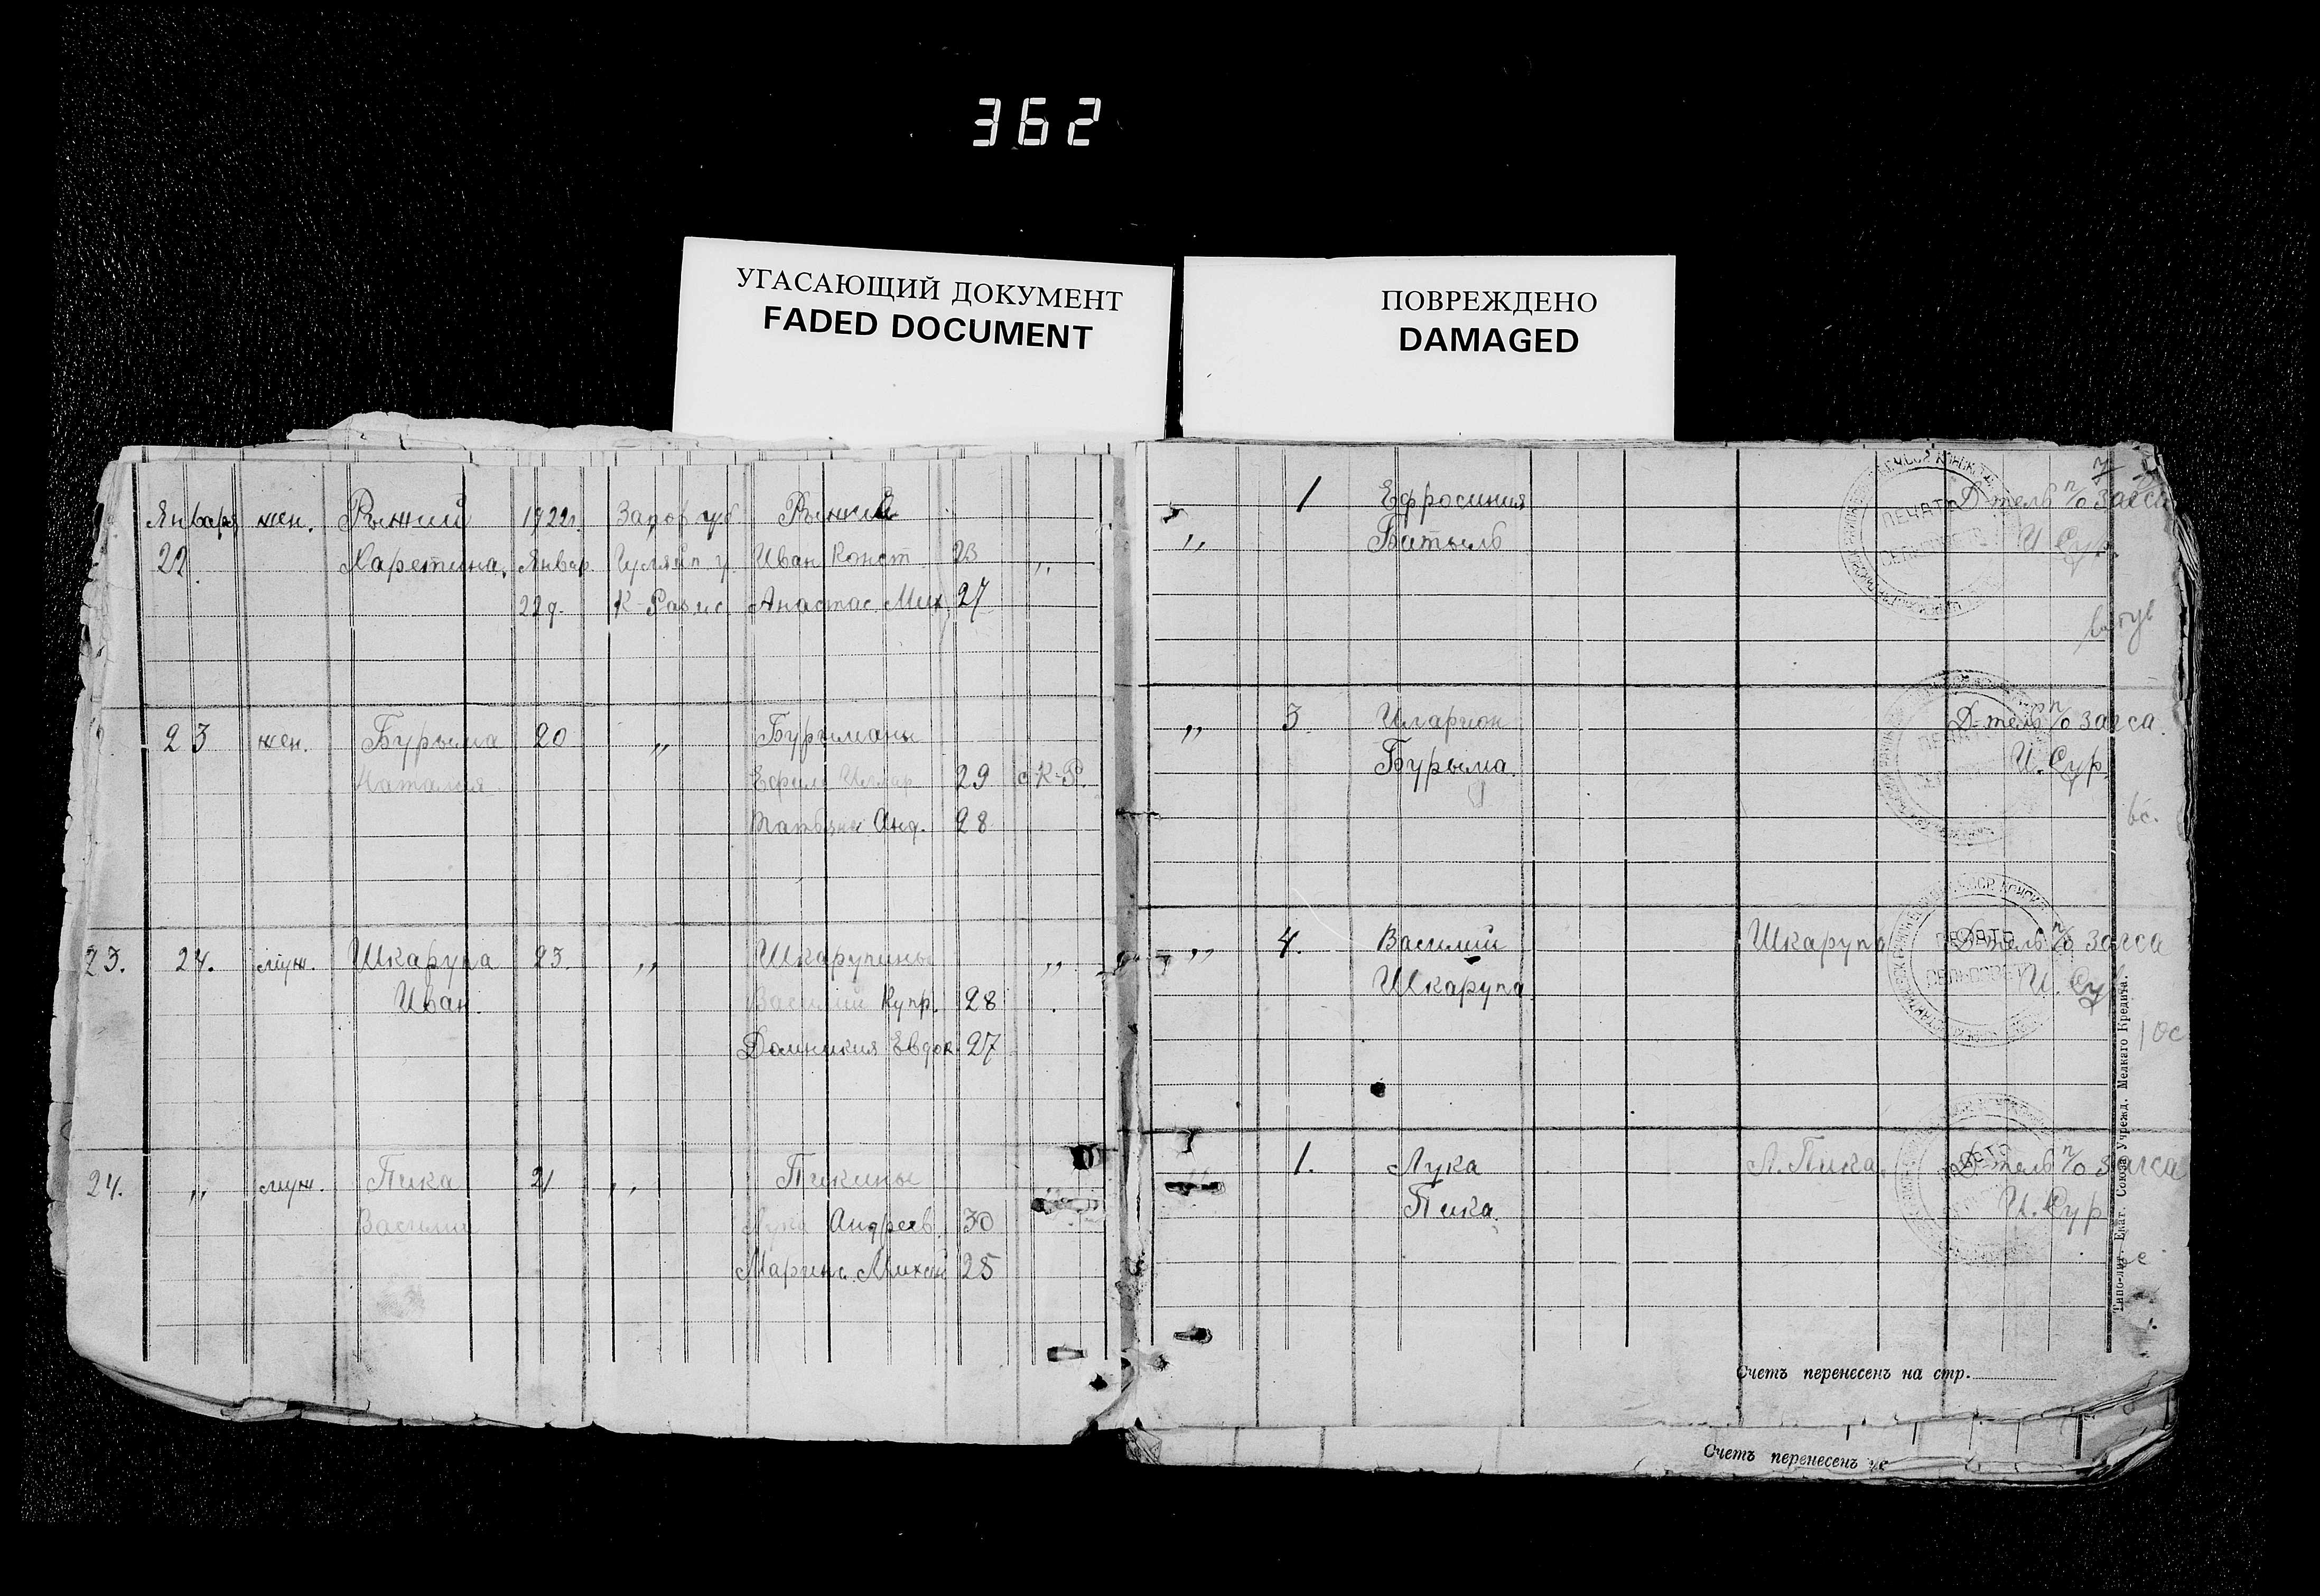 362
УГАСАЮЩИЙ ДОКУМЕНТ
FADED DOCUMENT
ПОВРЕЖДЕНО
DAMAGED
Января жен. Рыжий 1922г. Запор губ Рыжие
22. Харетина. Январ. Гуляйп у. Иван Конст 23 „
22д. К-Разс Анастас. Мих. 27
23 жен. Бурыма 20 „ Бурыманы
Наталия Ефим Иллар 29 с К-Р.
Татьяна Анд. 28
23. 24. муж. Шкарупа 23. „ Шкарупины „
Иван. Василий Купр. 28
Домникия Евдок. 27
24. „ муж. Пика 21 „ Пикины
Василий Лука Андреев. 30
Марина Михай 25
1 Ефросиния Д-тель п/о загса
„ Батыль И. Сур.
ПЕЧАТЬ
„ 3 Иларион Д-тель п/о загса.
Бурыма. И. Сур.
вс.
„ 4. Василий Шкарупа Д-тель п/о загса
Шкарупа И. Су
ос
1. Лука Л. Пика. Д-тель п/о загса
Пика. И. Сур
Типо-лит. Екат. Союза Учрежд. Мелкаго Кредита.
Счетъ перенесенъ на стр.
Счетъ перенесенъ